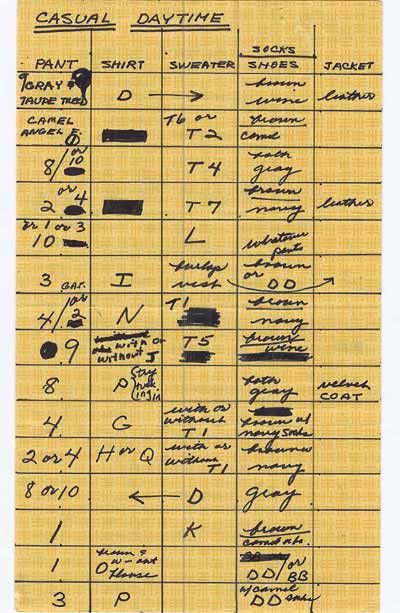 CASUAL DAYTIME
SOCKS
PANT SHIRT SWEATER SHOES JACKET
9 GRAY & brown
TAUPE TWEED D → wine leather
CAMEL T6 or brown
ANGEL F. T2 camel
or both
8/10 T4 gray
or brown
2 4 T7 navy leather
or 1 or 3 L whatever
10 pants
burlap brown
3 GAB. I vest or DD
or T1 brown
4/2 N navy
with or brown
9 without J T5 wine
(try both velvet
8 P tuck gray COAT
ing in)
with or
4 G without brown w/
T1 navy socks
2 or 4 H or Q with or brown
without T1 navy
8 or 10 ← D gray
1 K brown
camel
brown &
1 O w- ant DD/or BB
blouse
w/camel
3 P DD socks